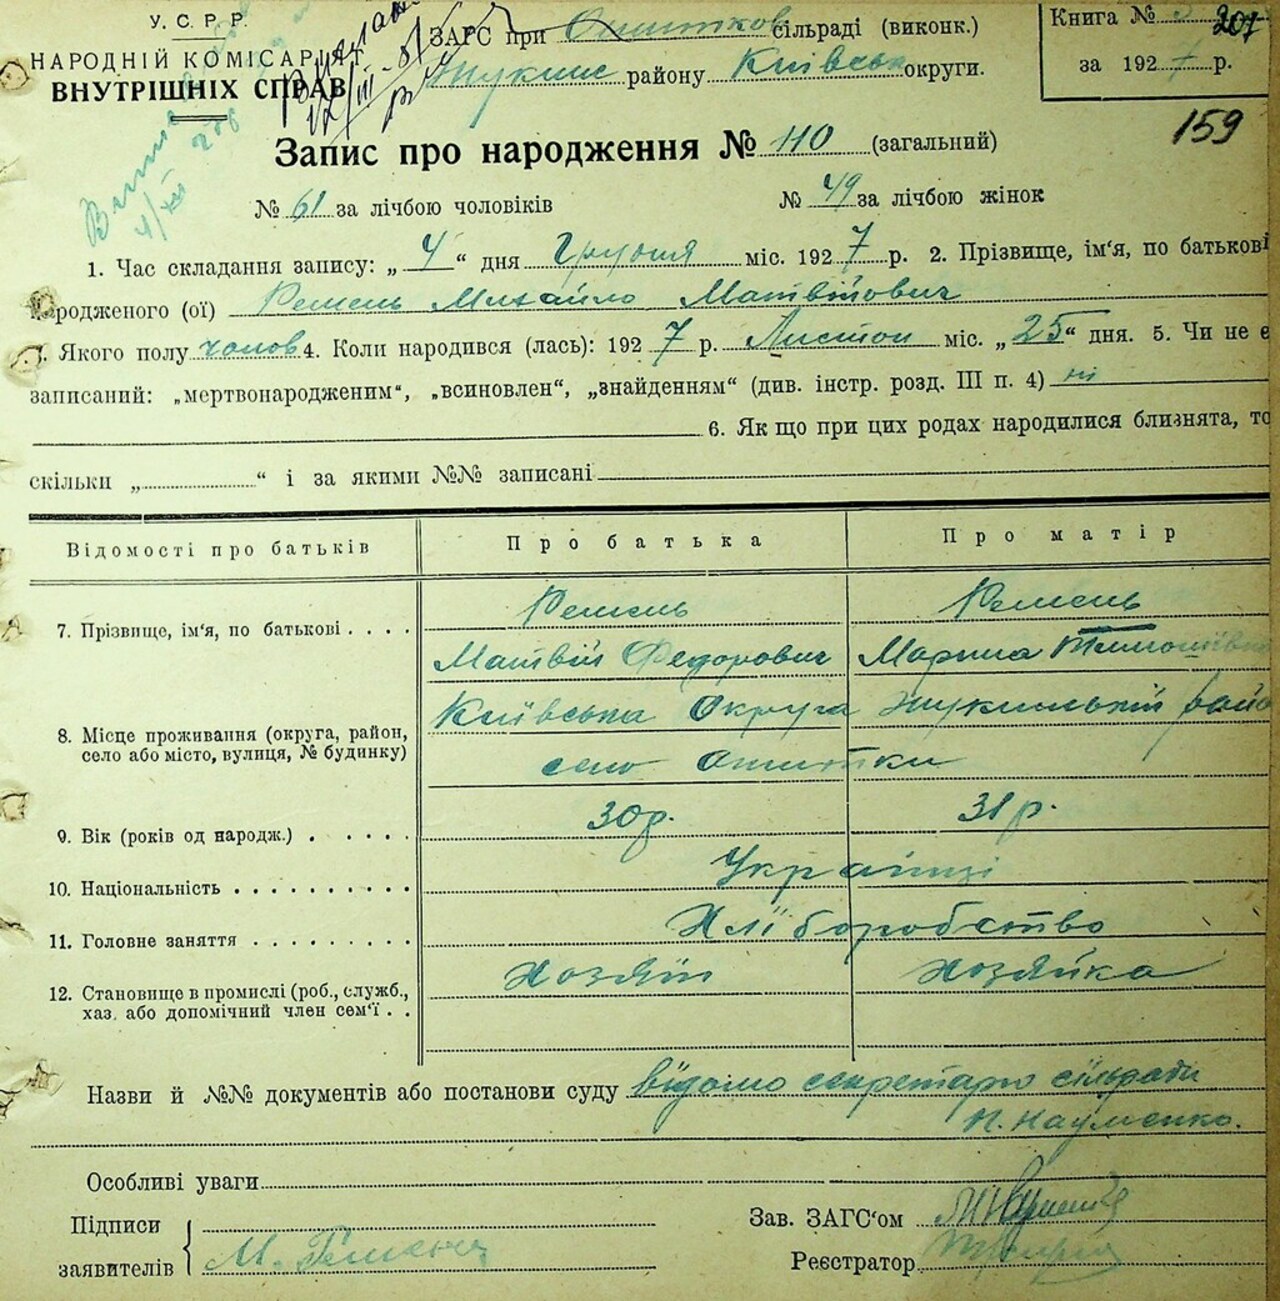 У.С.Р.Р.
НАРОДНІЙ КОМІСАРІАТ
ВНУТРІШНІХ СПРАВ
ЗАГС при сільраді (виконк.)
району Київськ округи.
Книга № 207
за 192 7 р.
159
Запис про народження № 110 (загальний)
№ 61 за лічбою чоловіків № 49 за лічбою жінок
1. Час складання запису: „ 4 “ дня Грудня міс. 192 7 р. 2. Прізвище, ім'я, по батькові
народженого (ої) Ремень Михайло Матвійович
Якого полу чолов 4. Коли народився (лась): 192 7 р. Листоп міс. „ 25 “ дня. 5. Чи не є
записаний: „мертвонародженим“, „всиновлен“, „знайденням“ (див. інстр. розд. III п. 4) ні
6. Як що при цих родах народилися близнята, то
скільки „ “ і за якими №№ записані
Відомості про батьків Про батька Про матір
7. Прізвище, ім'я, по батькові . . . . Ремень Ремень
Матвій Федорович Марина
8. Місце проживання (округа, район, село або місто, вулиця, № будинку) Київська Округа
село
9. Вік (років од народж.) . . . . . 30 р. 31 р.
10. Національність . . . . . . . . . . Українці
11. Головне заняття . . . . . . . . . Хліборобство
12. Становище в промислі (роб., служб., Хозяїн Хозяйка
хаз. або допомічний член сем'ї . .
Назви й №№ документів або постанови суду відомо секретарю сільради
П. Науменко.
Особливі уваги
Підписи Зав. ЗАГС'ом
заявителів М. Ремень Реєстратор